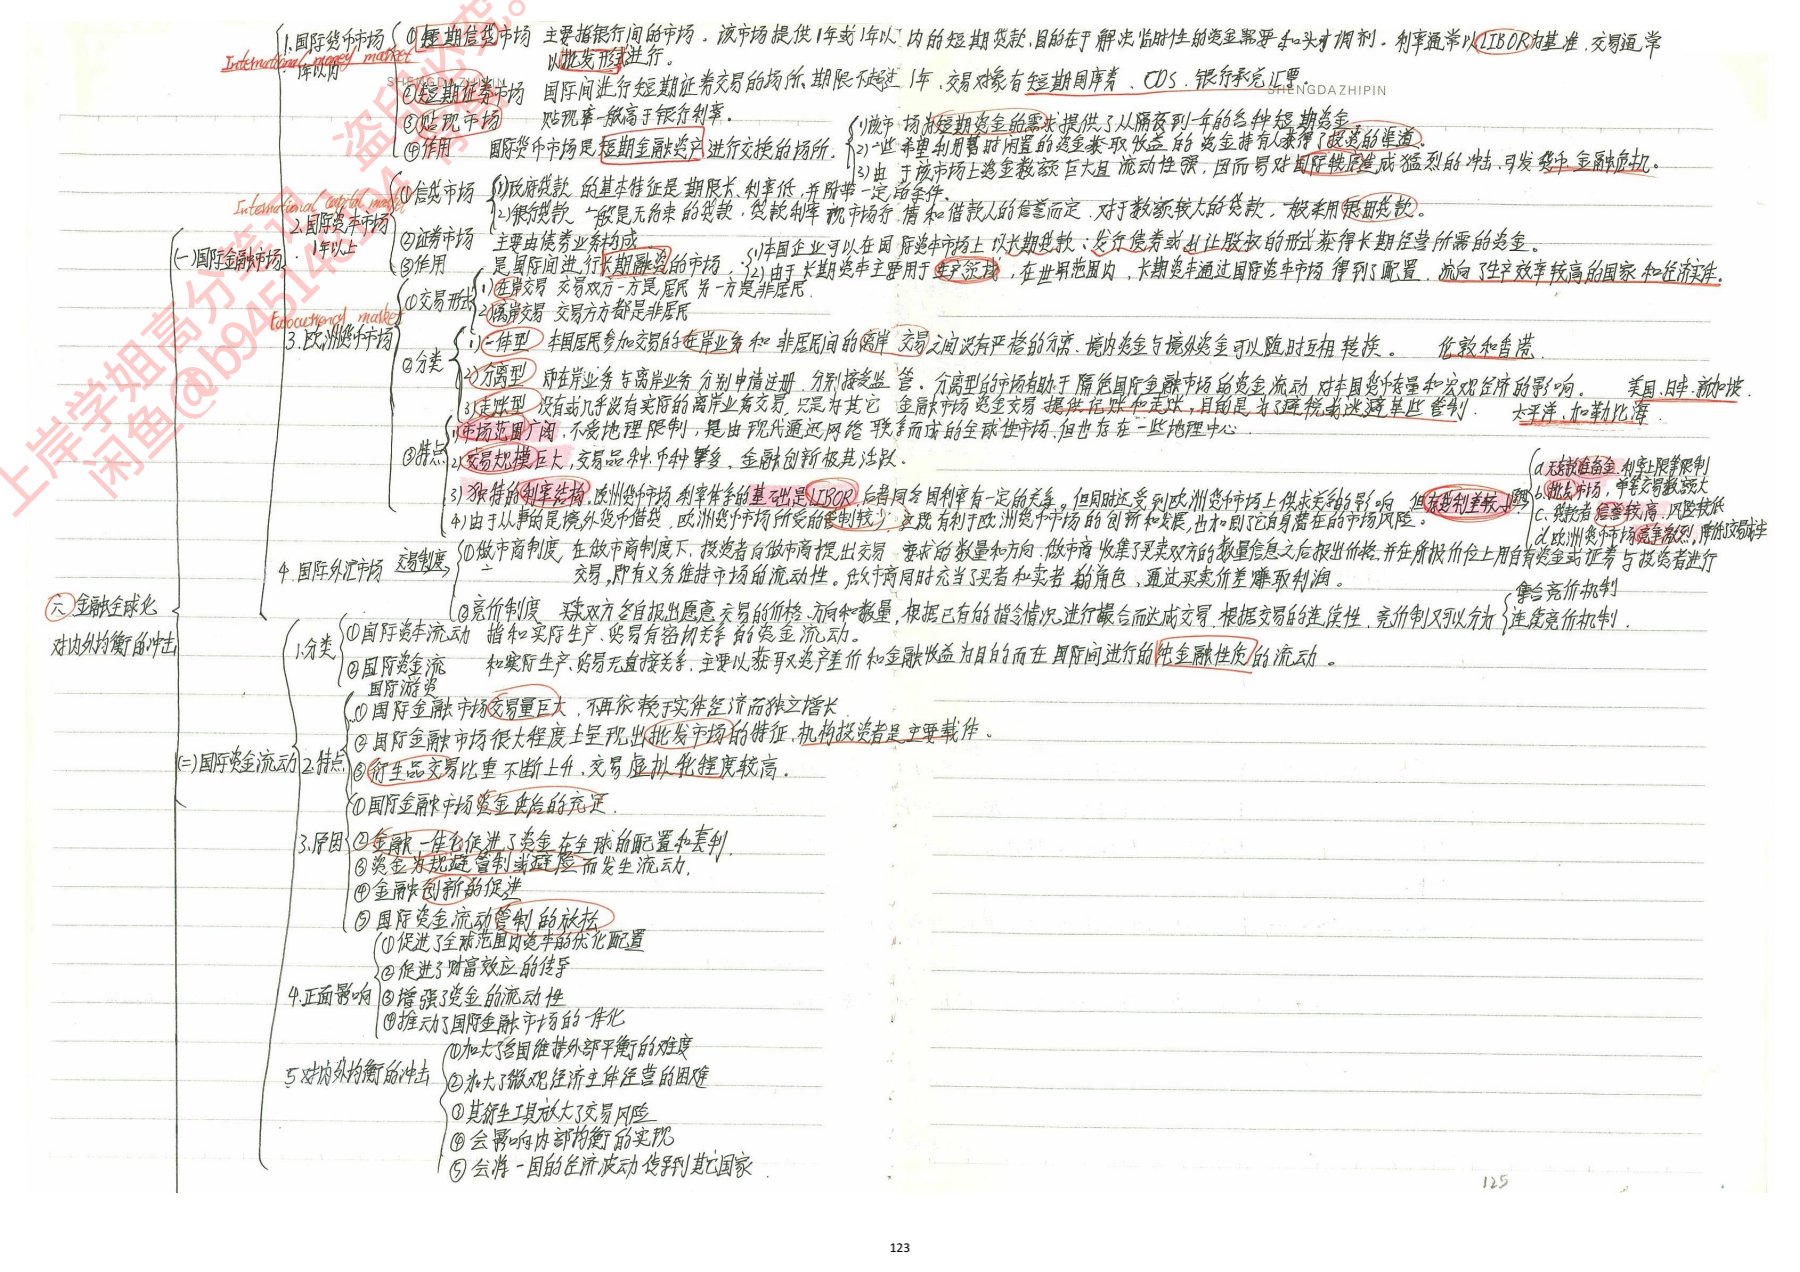 六 金融全球化
对内外均衡的冲击
(一)国际金融市场
1.国际货币市场
International money market
1年以内
①短期信贷市场 主要指银行间的市场。该市场提供1年或1年以内的短期贷款,目的在于解决临时性的资金需要和头寸调剂。利率通常以LIBOR为基准,交易通常
以批发形式进行。
SHENGDAZHIPIN
SHENGDAZHIPIN
②短期证券市场 国际间进行短期证券交易的场所,期限不超过1年,交易对象有短期国库券、CDS、银行承兑汇票。
③贴现市场 贴现率一般高于银行利率。
④作用 国际货币市场是短期金融资产进行交换的场所.
1)该市场为短期资金的需求提供了从隔夜到一年的各种短期资金
2)一些希望利用暂时闲置的资金获取收益的资金持有人获得了投资的渠道。
3)由于该市场上资金数额巨大且流动性强,因而易对国际秩序造成猛烈的冲击,引发货币金融危机。
International capital market
2.国际资本市场
1年以上
①信贷市场
1)政府贷款 的基本特征是期限长、利率低,并附带一定的条件。
2)银行贷款 一般是无约束的贷款,贷款利率视市场行情和借款人的信誉而定,对于数额较大的贷款,一般采用银团贷款。
②证券市场 主要由债券业务构成
③作用 是国际间进行长期融资的市场.
1)本国企业可以在国际资本市场上以长期贷款;发行债券或出让股权的形式获得长期经营所需的资金。
2)由于长期资本主要用于生产领域,在世界范围内,长期资本通过国际资本市场得到了配置,流向了生产效率较高的国家和经济实体。
3.欧洲货币市场
①交易形式
1)在岸交易 交易双方一方是居民另一方是非居民.
2)离岸交易 交易方方都是非居民
②分类
1)一体型 本国居民参加交易的在岸业务和非居民间的离岸交易之间没有严格的分离,境内资金与境外资金可以随时互相转换。 伦敦和香港.
2)分离型 即在岸业务与离岸业务分别申请注册,分别接受监管。分离型的市场有助于隔绝国际金融市场的资金流动对本国货币存量和宏观经济的影响。 美国、日本、新加坡.
3)走账型 没有或几乎没有实际的离岸业务交易,只是为其它金融市场资金交易提供记账和走账,目的是为了避税或逃避某些管制. 太平洋、加勒比海.
③特点
1)市场范围广阔,不受地理限制,是由现代通迅网络联系而成的全球性市场,但也存在一些地理中心.
2)交易规模巨大,交易品种、币种繁多、金融创新极其活跃.
3)独特的利率结构.欧洲货币市场利率体系的基础是LIBOR,后者同各国利率有一定的关系,但同时还受到欧洲货币市场上供求关系的影响.但存贷利差较小
a.无存款准备金.利率上限等限制
b.批发市场,单笔交易数额大
c.贷款者信誉较高,风险较低
d.欧洲货币市场竞争激烈,降低交易成本
4)由于从事的是境外货币借贷,欧洲货币市场所受的管制较少,这既有利于欧洲货币市场的创新和发展,也加剧了它自身潜在的市场风险。
4.国际外汇市场 交易制度
①做市商制度 在做市商制度下,投资者向做市商提出交易要求的数量和方向.做市商收集了买卖双方的数量信息之后报出价格,并在所报价位上用自有资金或证券与投资者进行
交易,即有义务维持市场的流动性。做市商同时充当了买者和卖者的角色,通过买卖价差赚取利润。
②竞价制度 买卖双方各自报出愿意交易的价格、方向和数量,根据已有的指令情况,进行撮合而达成交易.根据交易的连续性,竞价制又可以分为
集合竞价机制
连续竞价机制.
(二)国际资金流动
1.分类
①国际资本流动 指和实际生产、贸易有密切关系的资金流动。
②国际资金流 和实际生产、贸易无直接关系,主要以获取资产差价和金融收益为目的而在国际间进行的纯金融性质的流动。
国际游资
2.特点
①国际金融市场交易量巨大,不再依赖于实体经济而独立增长.
②国际金融市场很大程度上呈现出批发市场的特征、机构投资者是主要载体。
③衍生品交易比重不断上升、交易虚拟化程度较高。
3.原因
①国际金融市场资金供给的充足.
②金融一体化促进了资金在全球的配置和套利.
③资金为规避管制或避险而发生流动.
④金融创新的促进
⑤国际资金流动管制的放松
4.正面影响
①促进了全球范围内资本的优化配置
②促进了财富效应的传导
③增强了资金的流动性
④推动了国际金融市场的一体化
5.对内外均衡的冲击
①加大了各国维持外部平衡的难度
②加大了微观经济主体经营的困难
③其衍生工具放大了交易风险
④会影响内部均衡的实现
⑤会将一国的经济波动传导到其它国家.
125
123
上岸学姐高分笔记,盗印必究。